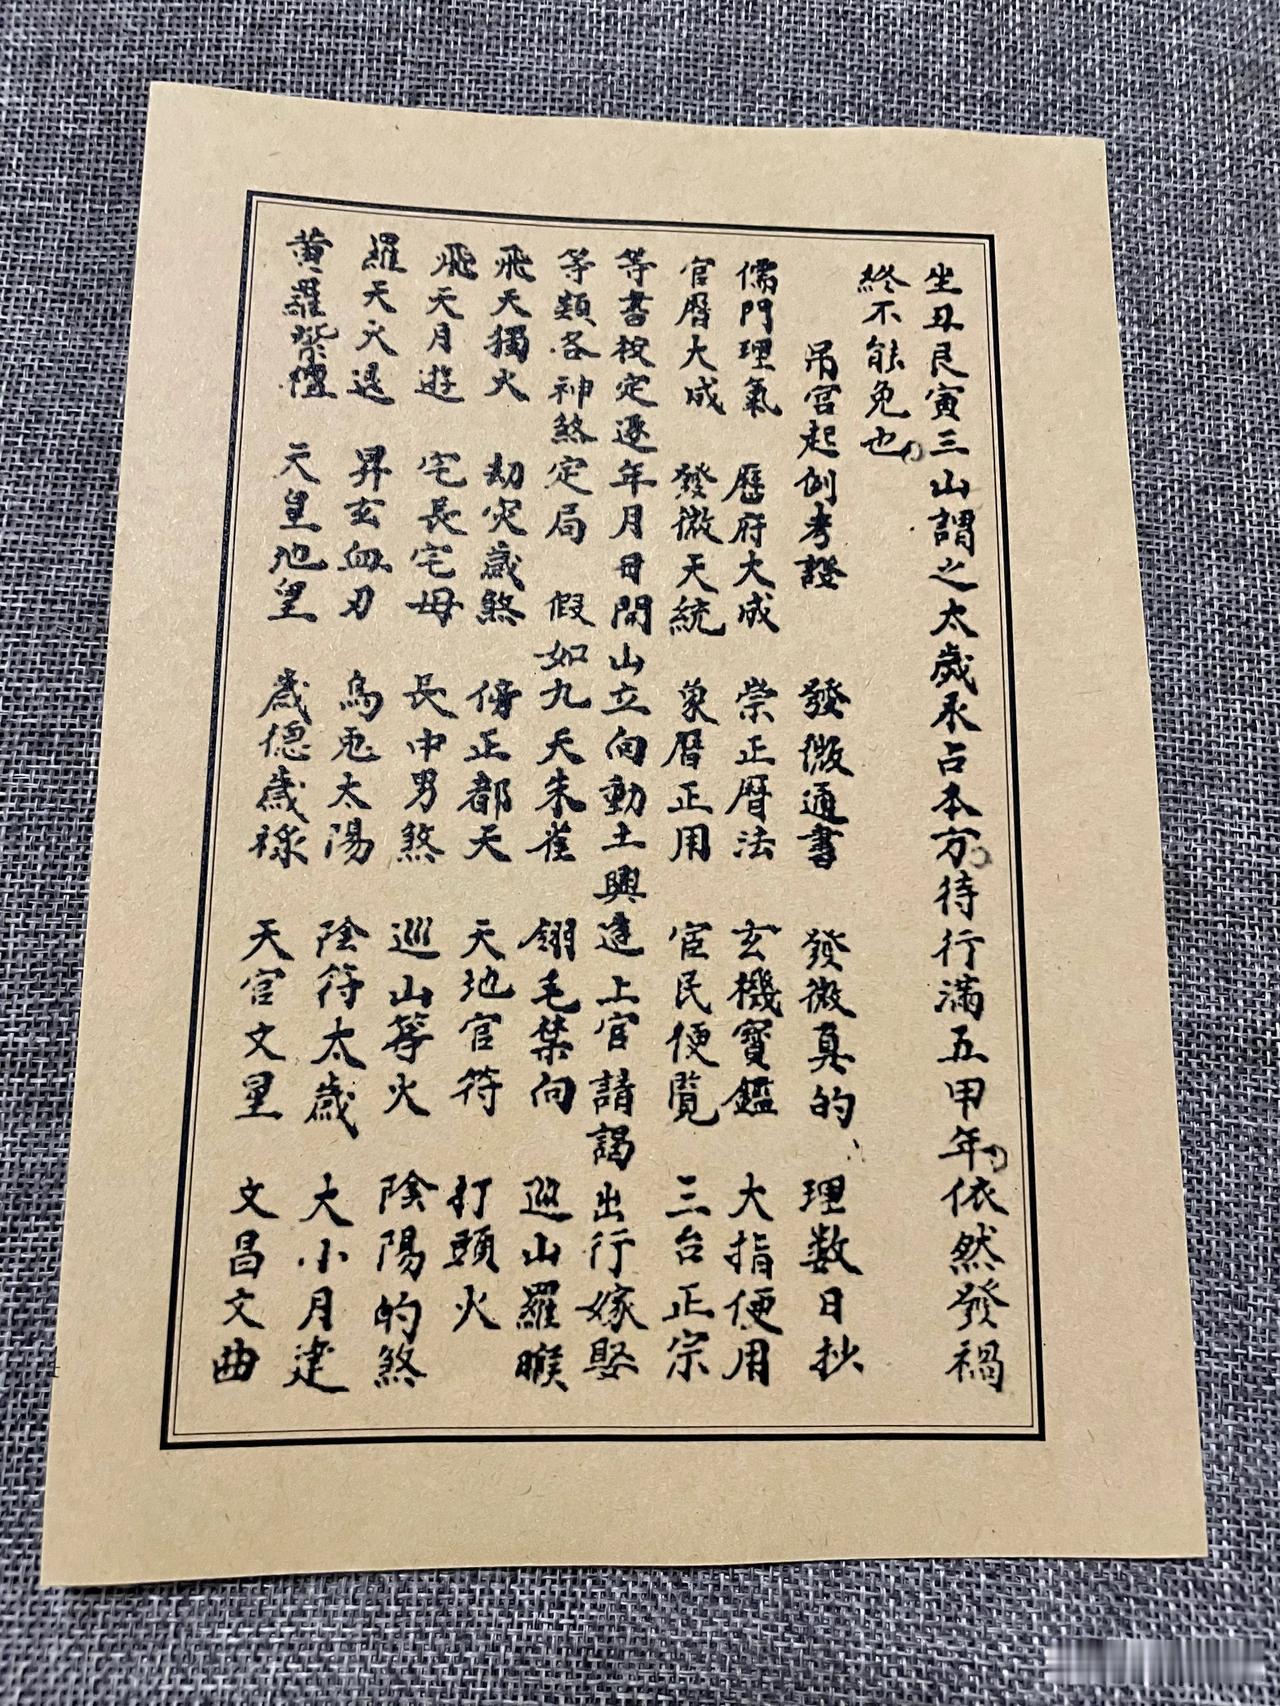 坐丑艮寅三山謂之太歲承占本方。待行滿五甲年。依然發禍
終不能免也。
吊宮起例考證 發微通書 發微真的 理数日抄
儒門理氣 歷府大成 崇正曆法 玄機寶鑑 大指便用
官曆大成 發微天統 象曆正用 官民便覧 三台正宗
等書校定逐年月日開山立向動土興造上官請謁出行嫁娶
等類各神煞定局 假如九天朱雀 翎毛禁向 巡山羅睺
飛天獨火 劫灾歲煞 傍正都天 天地官符 打頭火
飛天月遊 宅長宅母 長中男煞 巡山等火 陰陽的煞
羅天大退 昇玄血刃 烏兎太陽 陰符太歲 大小月建
黄羅紫檀 天皇地皇 歲徳歲禄 天官文星 文昌文曲